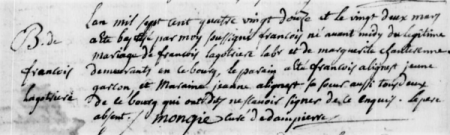 Lan mil sept cent quatre vingt douze et le vingt deux mars
B. de
a été baptisé par moy soussigné francois né avant midy du légitime
mariage de francois lagotriere labr et de marguerite
francois
demeurants en ce bourg, le parain a été francois jeune
lagotriere
garcon et Maraine jeanne sa soeur aussi tous deux
de ce bourg qui ont dit ne scavoir signer de ce enquis le pere
absent. / mongie curé de dampierre